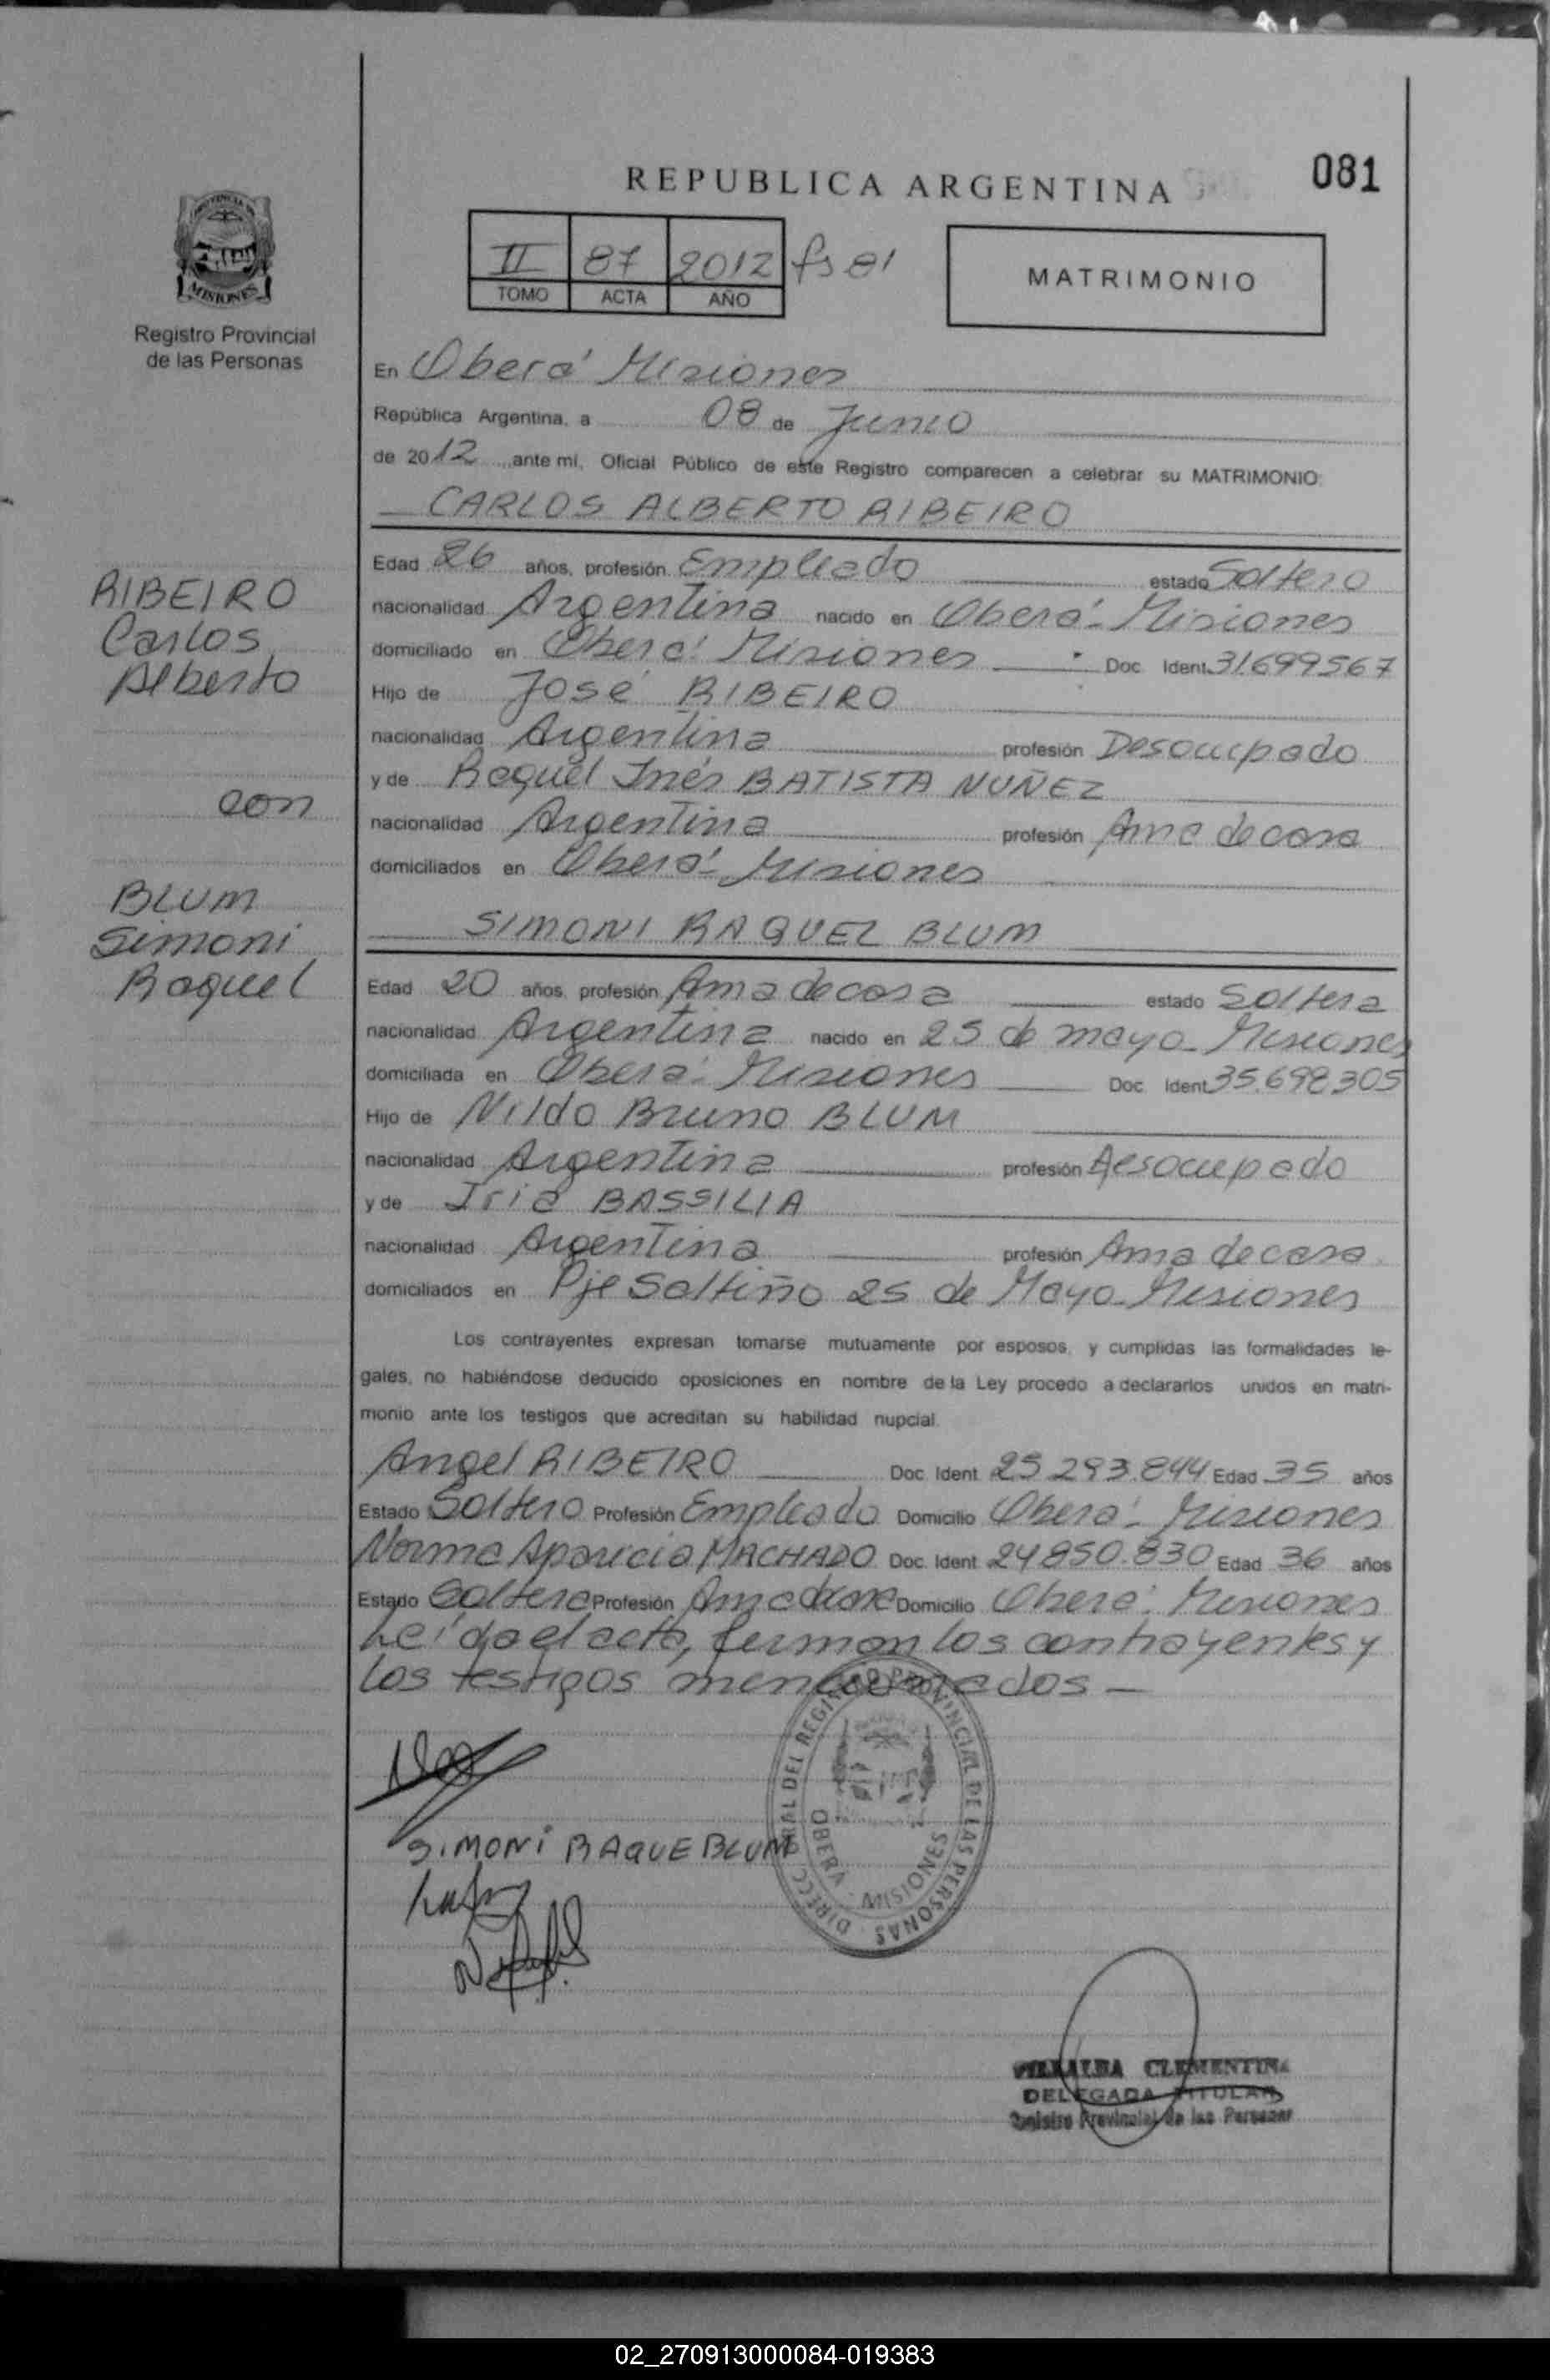 REPUBLICA ARGENTINA
081
II 87 2012 fs 81
TOMO ACTA AÑO
MATRIMONIO
PROVINCIA DE
MISIONES
Registro Provincial
de las Personas
RIBEIRO
Carlos
Alberto
con
BLUM
Simoni
Raquel
En Oberá Misiones
República Argentina, a 08 de Junio
de 2012 ante mi, Oficial Público de este Registro comparecen a celebrar su MATRIMONIO:
CARLOS ALBERTO RIBEIRO
Edad 26 años, profesión Empleado estado Soltero
nacionalidad Argentina nacido en Oberá - Misiones
domiciliado en Oberá - Misiones Doc. Ident. 31.699.567
Hijo de José RIBEIRO
nacionalidad Argentina profesión Desocupado
y de Raquel Inés BATISTA NUÑEZ
nacionalidad Argentina profesión Ama de casa
domiciliados en Oberá - Misiones
SIMONI RAQUEL BLUM
Edad 20 años, profesión Ama de casa estado Soltera
nacionalidad Argentina nacido en 25 de mayo - Misiones
domiciliada en Oberá - Misiones Doc. Ident. 35.698.305
Hijo de Nildo Bruno BLUM
nacionalidad Argentina profesión Desocupado
y de Iria BASSILIA
nacionalidad Argentina profesión Ama de casa
domiciliados en Pje Saltiño 25 de Mayo - Misiones
Los contrayentes expresan tomarse mutuamente por esposos, y cumplidas las formalidades le-
gales, no habiéndose deducido oposiciones en nombre de la Ley procedo a declararlos unidos en matri-
monio ante los testigos que acreditan su habilidad nupcial.
Angel RIBEIRO Doc. Ident. 25.293.844 Edad 35 años
Estado Soltero Profesión Empleado Domicilio Oberá - Misiones
Norma Aparicia MACHADO Doc. Ident. 24.850.830 Edad 36 años
Estado Soltera Profesión Ama de casa Domicilio Oberá - Misiones
Leída el acta, firman los contrayentes y
los testigos mencionados -
SIMONI RAQUE BLUM
DIRECC GRAL DEL REGISTRO PROVINCIAL DE LAS PERSONAS
OBERÁ - MISIONES
VILLALBA CLEMENTINA
DELEGADA TITULAR
Registro Provincial de las Personas
02_270913000084-019383